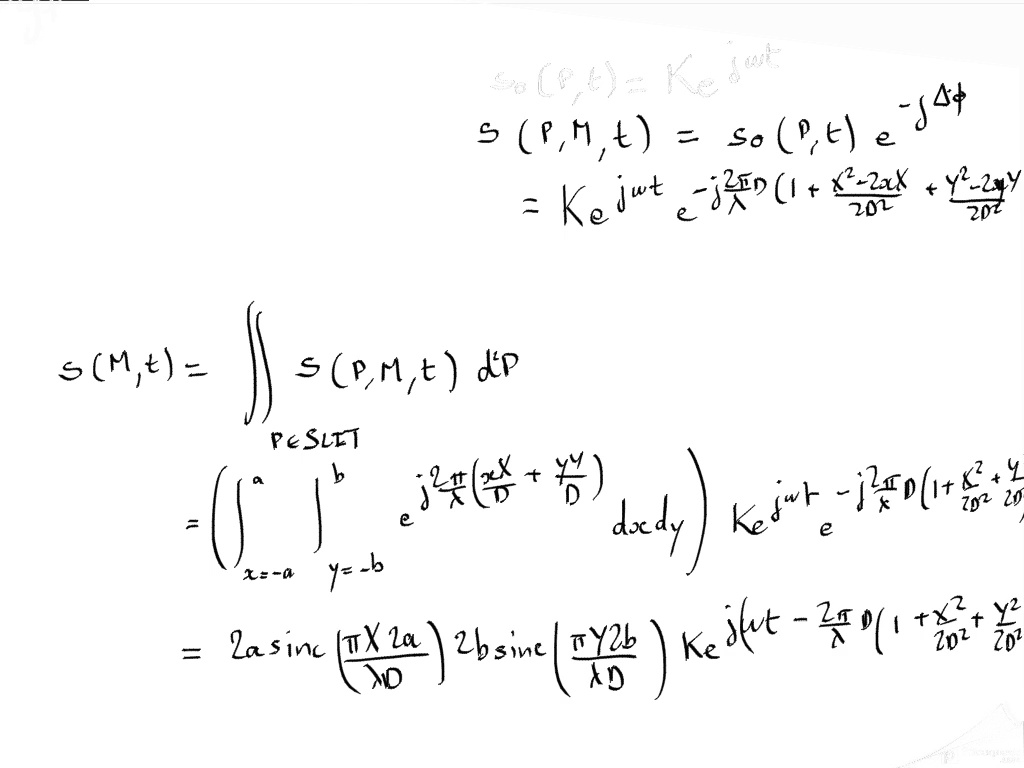 s₀(P,t) = K e^{jωt}
s(P,M,t) = s₀(P,t) e^{-jΔϕ}
= K e^{jωt} e^{-j\frac{2π}{λ}D(1 + \frac{X²-2xX}{2D²} + \frac{Y²-2yY}{2D²}}
s(M,t) = ∬_{P∈SLIT} s(P,M,t) d²P
= (∫_{x=-a}^{a} ∫_{y=-b}^{b} e^{j\frac{2π}{λ}(\frac{xX}{D} + \frac{yY}{D})} dxdy) K e^{jωt} e^{-j\frac{2π}{λ}D(1 + \frac{X²}{2D²} + \frac{Y}{2D}}
= 2a sinc(\frac{πX2a}{λD}) 2b sinc(\frac{πY2b}{λD}) K e^{j(ωt - \frac{2π}{λ}D(1 + \frac{X²}{2D²} + \frac{Y²}{2D²}}